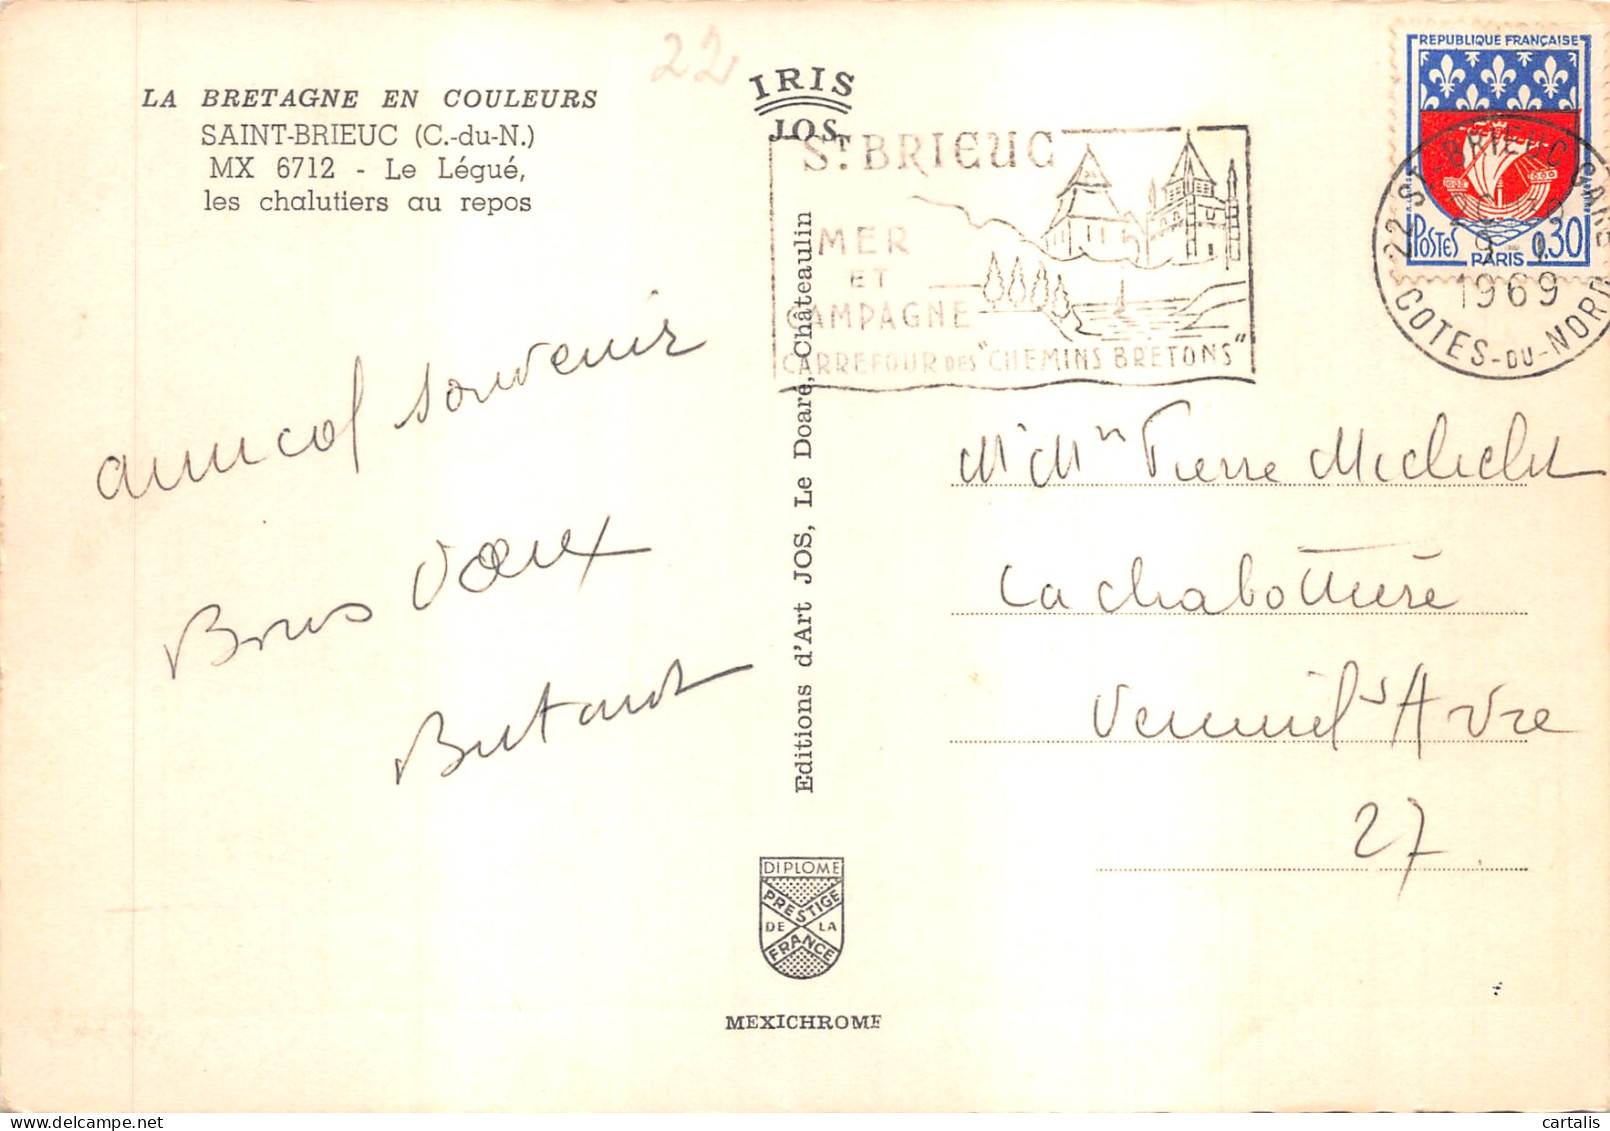 22
LA BRETAGNE EN COULEURS
SAINT-BRIEUC (C.-du-N.)
MX 6712 - Le Légué,
les chalutiers au repos
IRIS
JOS
ST BRIEUC
MER
ET
CAMPAGNE
CARREFOUR DES "CHEMINS BRETONS"
REPUBLIQUE FRANÇAISE
POSTES 0,30
PARIS
22 ST-BRIEUC GARE
1969
COTES-DU-NORD
amical souvenir
Bons voeux
Editions d'Art JOS, Le Doare, Châteaulin
Mr Mme Pierre Michelet
La Chabottière
Verneuil s/ Avre
27
DIPLOME
PRESTIGE
DE LA
FRANCE
MEXICHROME
cartalis